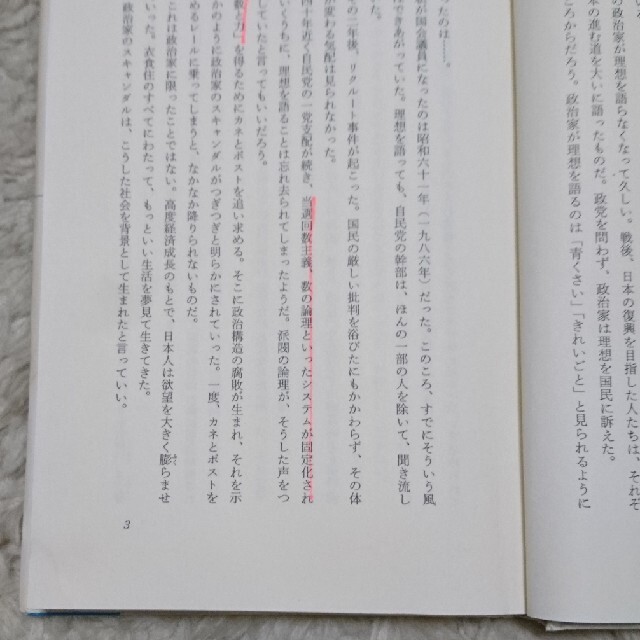 の政治家が少なくなって久しい。戦後、日本の復興を目指した人たちは、それぞ
来の進む道を大いに語ったものだ。政党を問わず、政治家は理想を国民に訴えた。
ころかだろう。政治家が理想を語るのは「青くさい」「きれいごと」と見られるように
たのは――。
の国会議員になったのは昭和六十一年（一九八六年）だった。このころ、すでにそういう風
できあがっていた。理想を語っても、自民党の幹部は、ほんの一部の人を除いて、聞き流し
の二年後、リクルート事件が起こった。国民の厳しい批判を浴びたにもかかわらず、その体
変わる気配は見られなかった。
十年近く自民党の一党支配が続き、当選回数主義、数の論理といったシステムが固定化され
いうちに、理想を語ることは忘れ去られてしまったようだ。派閥の論理が、そうした声をつ
していたと言ってもいいだろう。
数」を得るためにカネとポストを追い求める。そこに政治構造の腐敗が生まれ、それを示
かのように政治家のスキャンダルがつぎつぎと明らかにされていった。一度、カネとポストを
めるレールに乗ってしまうと、なかなか降りられないものだ。
これは政治家に限ったことではない。高度経済成長のもとで、日本人は欲望を大きく膨らませ
いった。衣食住のすべてにわたって、もっといい生活を夢見て生きてきた。
政治家のスキャンダルは、こうした社会を背景として生まれたと言っていい。
3